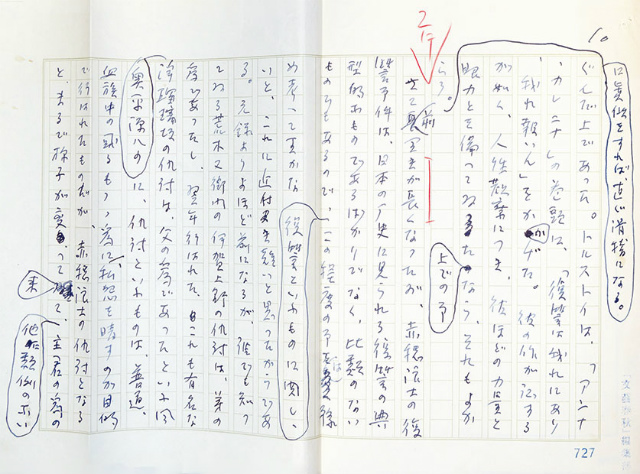 10
口真似をすれば、直ぐ滑稽になる。
ぐんだ上であった。トルストイは、「アンナ
・カレニナ」の巻頭に、「復讐は我れにあり
、我れ報いん」をかかげた。彼の作が証する
がごとく、人性観察につき、彼ほどの力量と
眼力とを備ってゐたなら、それもよか
らう。
2行
さて前置きが長くなったが、赤穂浪士の復
讐事件は、日本の歴史に見られる復讐の典
型的なものであるばかりでなく、比類のない
ものでもあるので、この程度の予
上での予
め考へて置かな
復讐といふものに関し、
いと、これに近付き難いと思ったからであ
る。元禄よりよほど前になるが、誰も知っ
てゐる荒木又右衛門の伊賀上野の仇討は、弟の
為であったし、翌年行はれた、これも有名な
浄瑠璃坂の仇討は、父の為であったといふ風
奥平源八の
に、仇討といふものは普通、
血族中の或るもの、為に私怨を晴すのが目的
で行はれたものだが、赤穂浪士の仇討となる
と、まるで様子が変って来て、主君の為の
来
他に類例のない
727